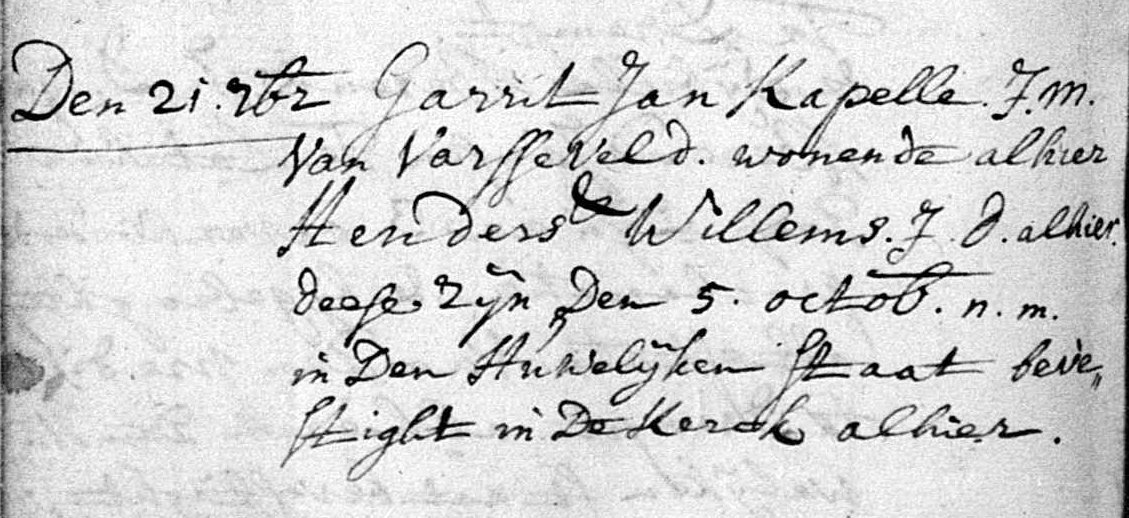 Den 21. 7br Garrit Jan Kapelle. J.m.
Van Varsseveld. wonende alhier
&
Henders Willems. J. d. alhier.
deese zÿn Den 5. octob. n. m.
in Den Huwelÿken staat beve„
stight in De Kerck alhier.